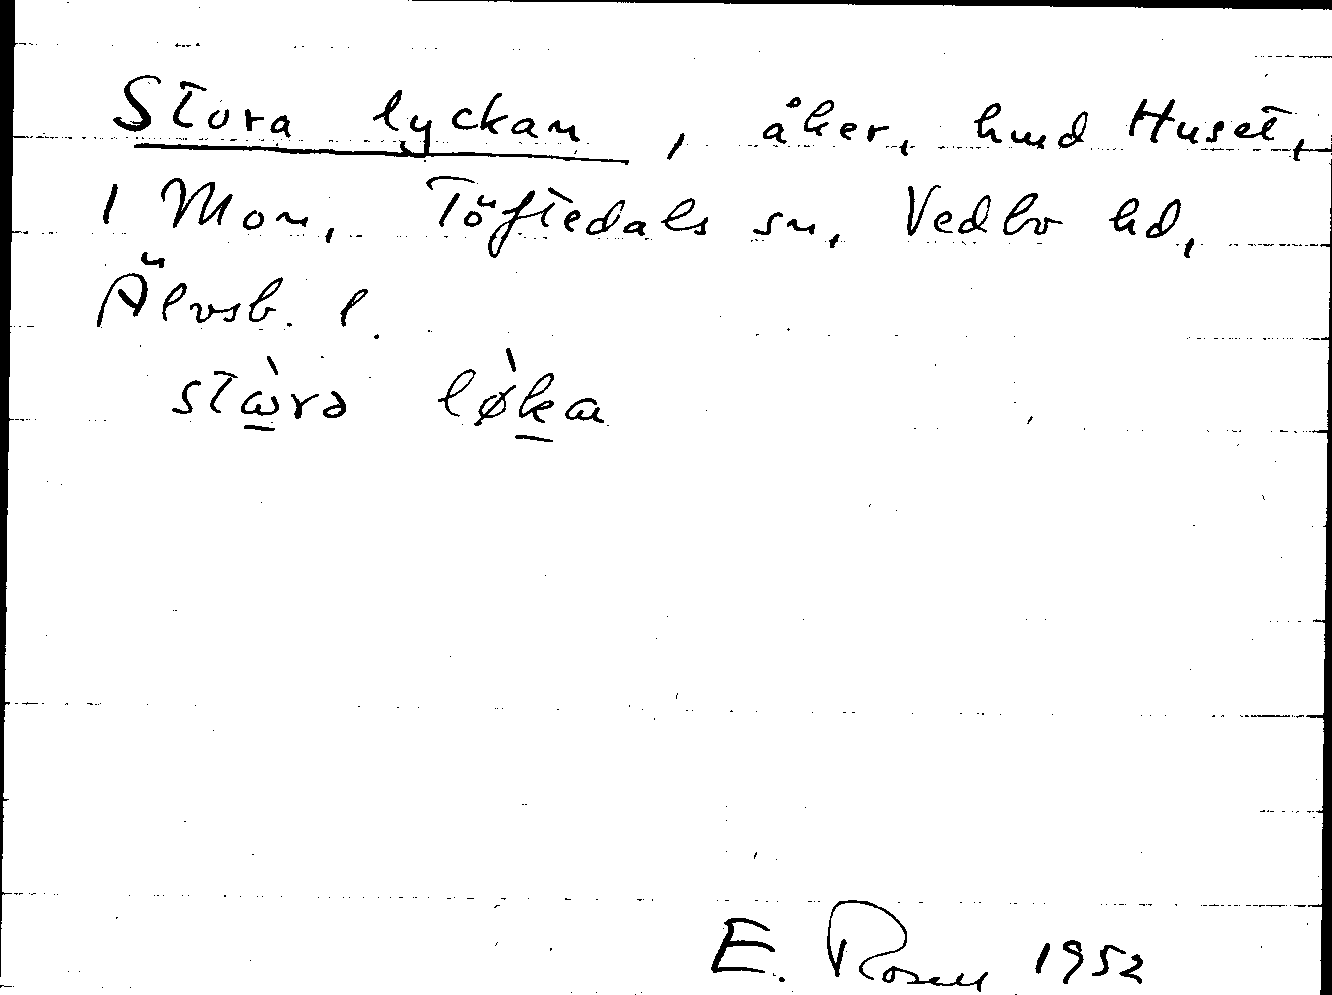 Stora lyckan, åker, hmd Huset,
1 Mon, Töftedals sn, Vedbo hd,
Älvsb. l.
stὼrə lø̀ka
E. Rosell 1952